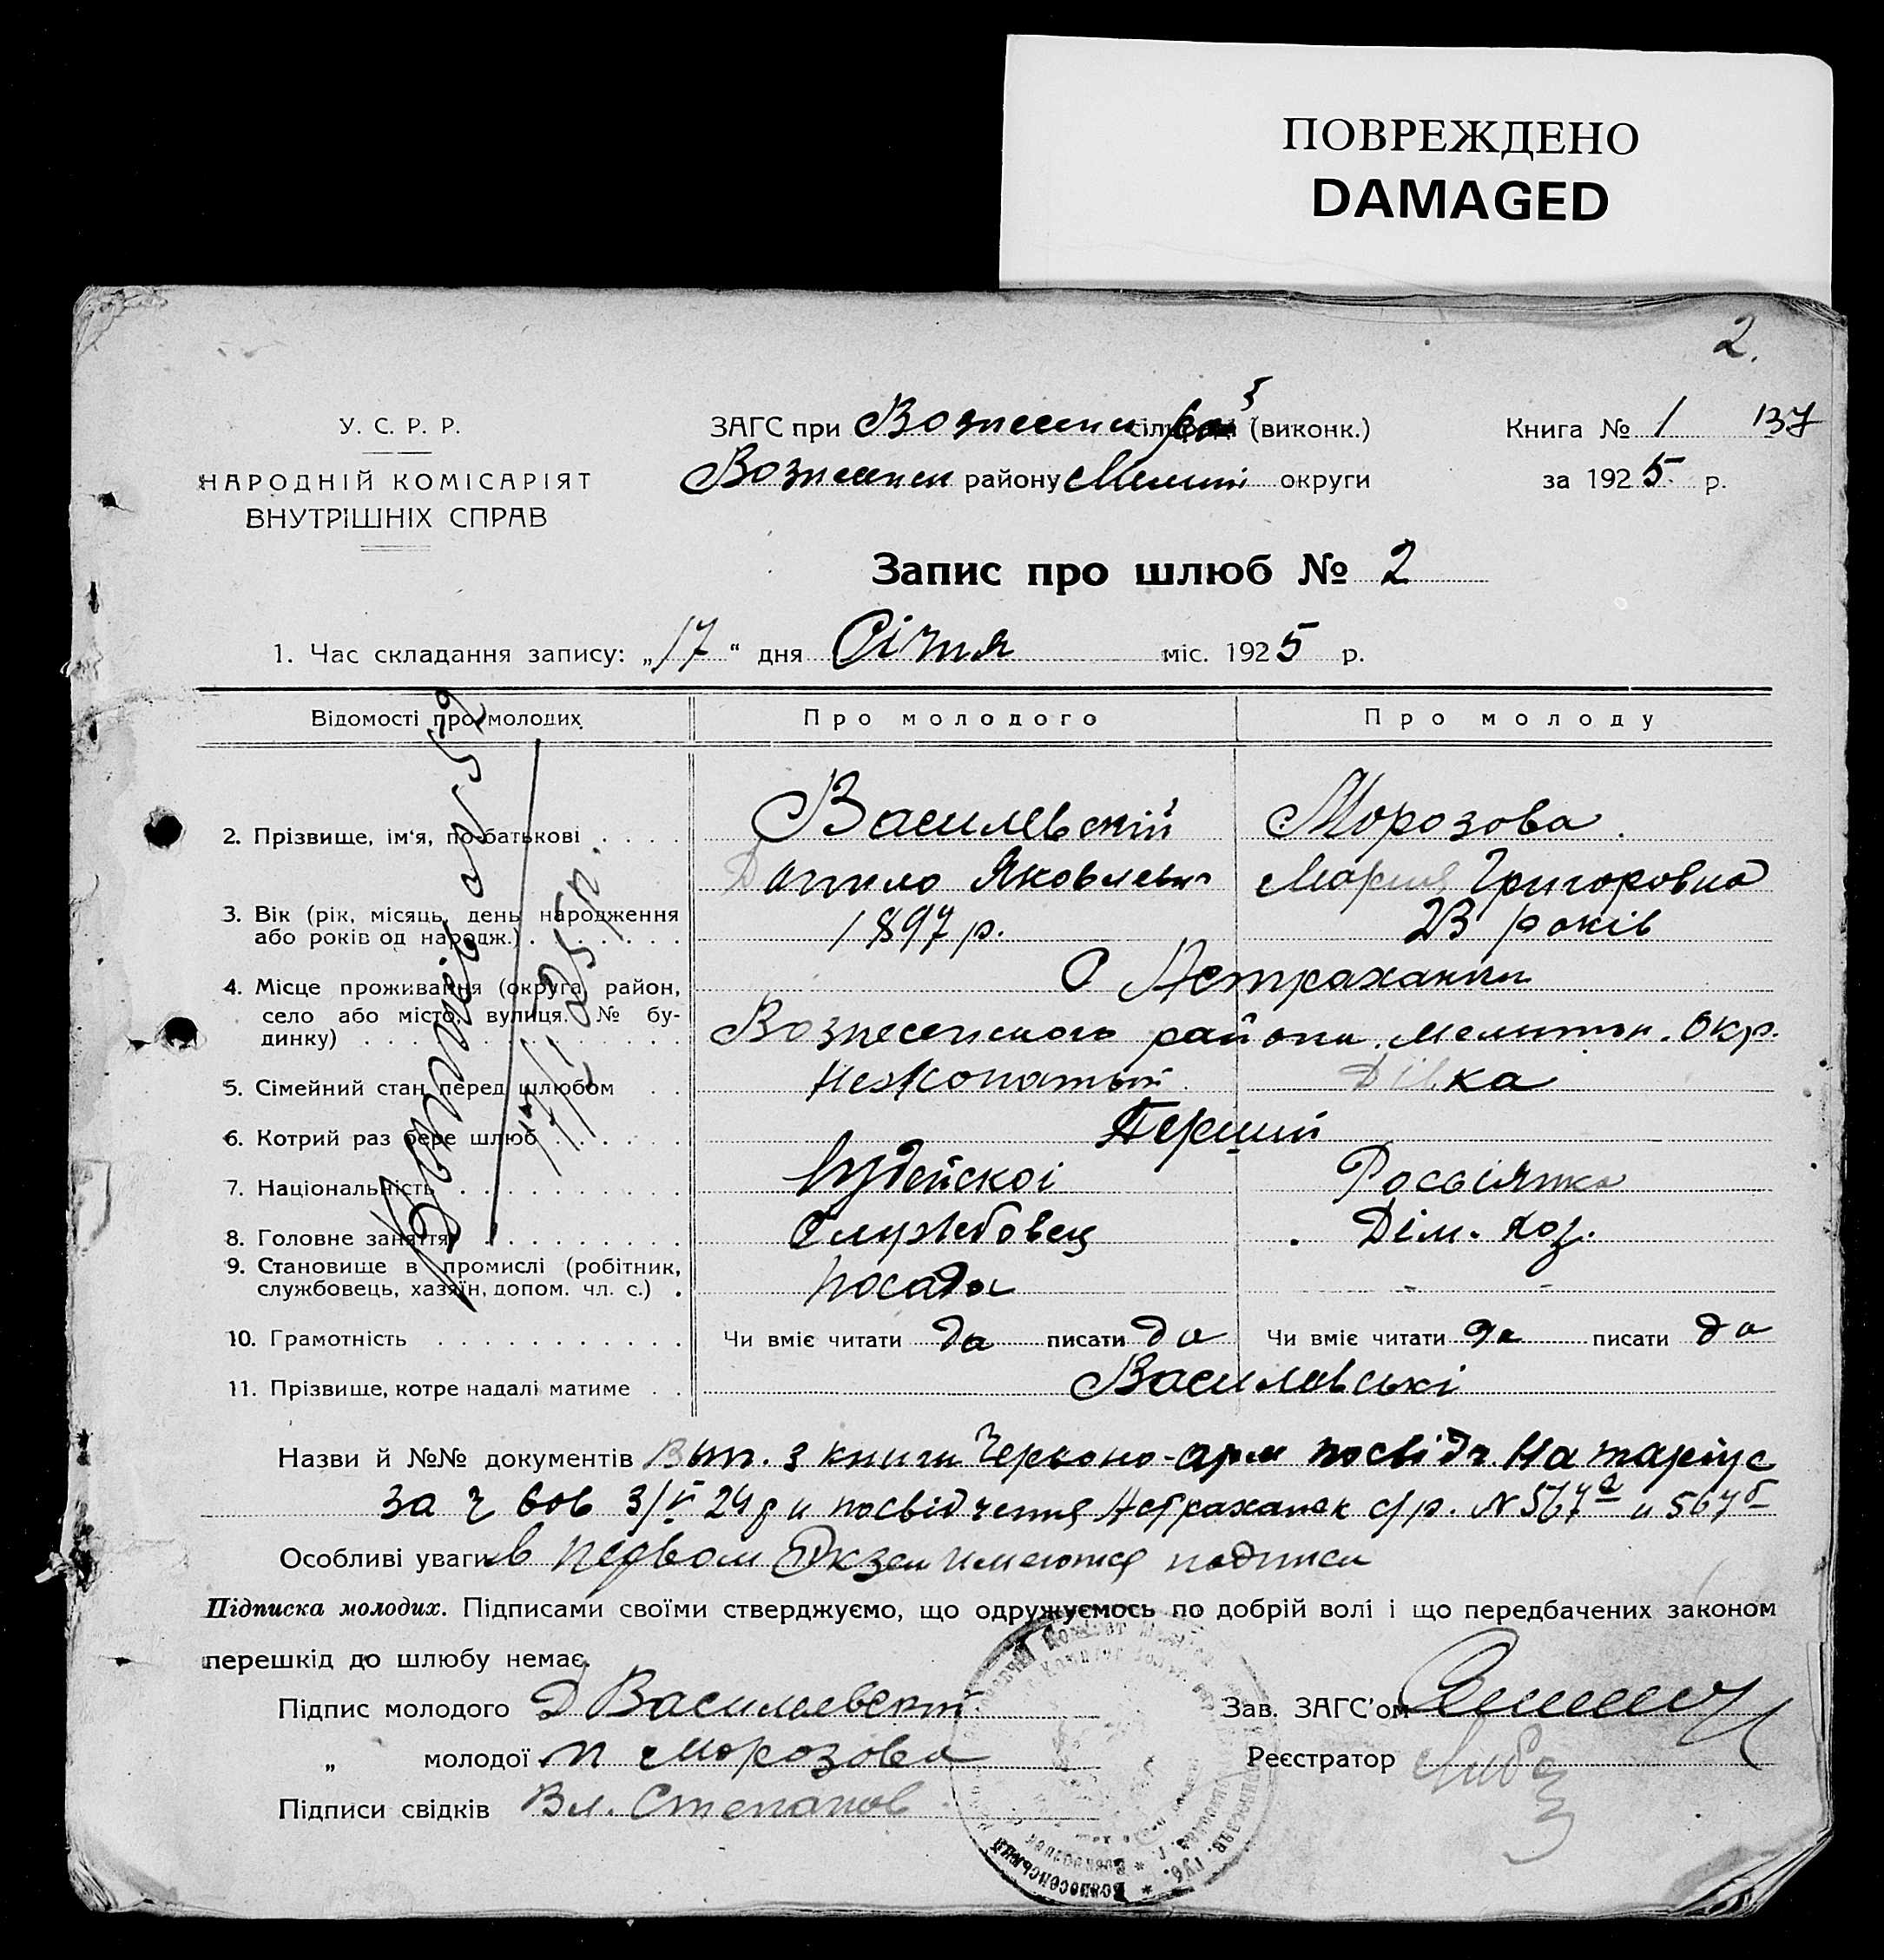 ПОВРЕЖДЕНО
DAMAGED
2.
У. С. Р. Р.
НАРОДНІЙ КОМІСАРІЯТ
ВНУТРІШНІХ СПРАВ
ЗАГС при Вознесенск (виконк.)
Вознесенск району Меліт округи
Книга № 1 137
за 1925 р.
Запис про шлюб № 2
1. Час складання запису: „17“ дня Січня міс. 1925 р.
Відомості про молодих
Про молодого
Про молоду
2. Прізвище, ім‘я, по-батькові . . . .
Василевский
Морозова
Данило Яковлевич
Мария Григоровна
3. Вік (рік, місяць, день народження
або років од народж.)
1897 р.
23 років
4. Місце проживання (округа, район,
село або місто, вулиця, № бу-
динку)
С Астраханки
Вознесенского района Мелитоп. Окр.
5. Сімейний стан перед шлюбом
Нежонатый
Дівка
6. Котрий раз бере шлюб
Перший
7. Національність
Іудейскоі
Россіянка
8. Головне заняття
Службовец
Дім. хоз.
9. Становище в промислі (робітник,
службовець, хазяїн, допом. чл. с.)
посада
- -
10. Грамотність
Чи вміє читати да писати да
Чи вміє читати да писати да
11. Прізвище, котре надалі матиме
Василевські
17/I 25 р.
Назви й №№ документів Вып. з книги Червоно-арм посвідч. Натаріус
за ч 606 3/VI 24 р и посвідчення Астраханск с/р. № 567а и 567б
Особливі уваги в первом Экзем имеются подписи
Підписка молодих. Підписами своїми стверджуємо, що одружуємось по добрій волі і що передбачених законом
перешкід до шлюбу немає.
Підпис молодого Д Василевский
„ молодої М Морозова
Підписи свідків Вл. Степанов
Зав. ЗАГС’ом
Реєстратор